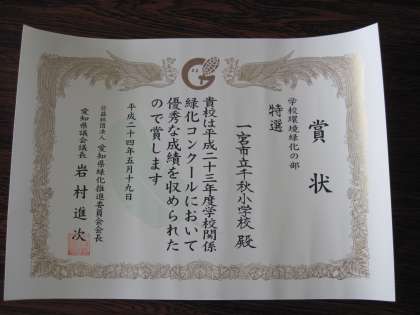 賞状
学校環境緑化の部
特選
一宮市立千秋小学校 殿
貴校は平成二十三年度学校関係
緑化コンクールにおいて
優秀な成績を収められた
ので賞します
平成二十四年五月十九日
公益社団法人 愛知県緑化推進委員会会長
愛知県議会議長 岩村進次